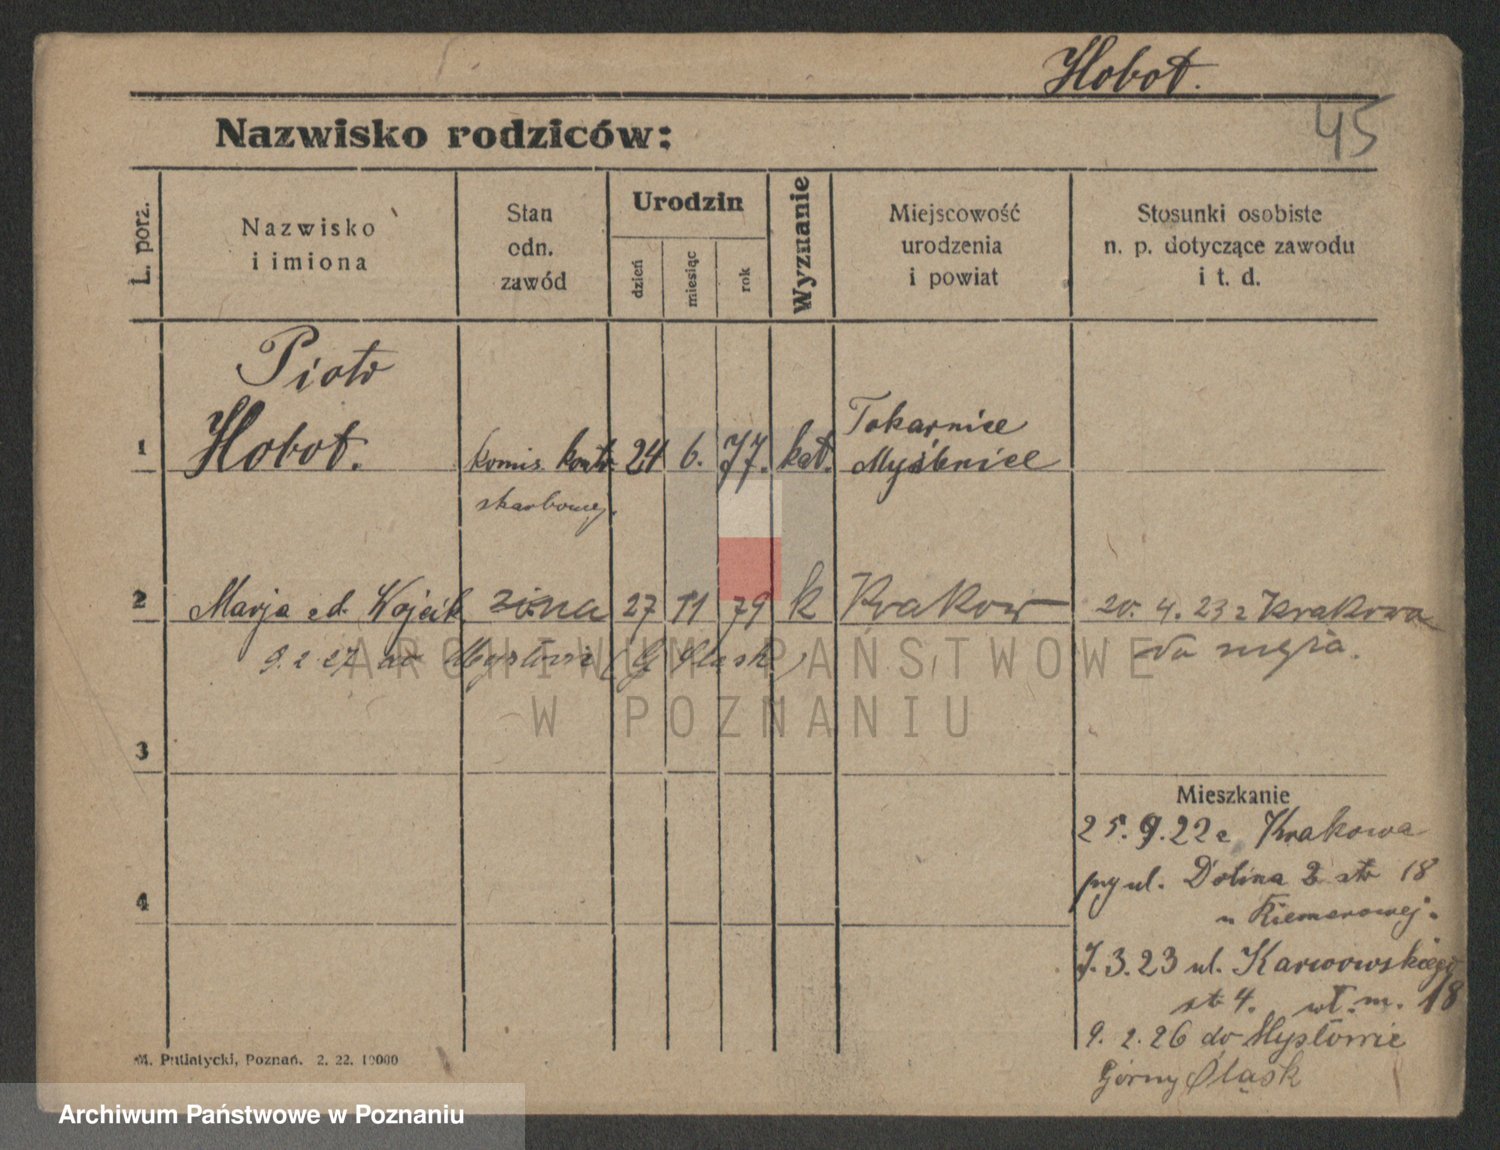 Hobot.
45
Nazwisko rodziców:
L. porz.
Nazwisko
i imiona
Stan
odn.
zawód
Urodzin
dzień
miesiąc
rok
Wyznanie
Miejscowość
urodzenia
i powiat
Stosunki osobiste
n. p. dotyczące zawodu
i t. d.
Piotr
1 Hobot. komis. kontr. 24 6. 77. kat. Tokarnice
Myślenice
skarbowej.
2 Marja zd. Wojcik żona 27 11 79 k Krakow 20. 4. 23 z Krakowa
do męża.
9. 2. 27 do Mysłowic (G Śląsk)
ARCHIWUM PAŃSTWOWE
W POZNANIU
3
Mieszkanie
25. 9. 22 z Krakowa
4
ul. Dolina 2 st 18
u
7. 3. 23 ul. Karwowskiego
st 4. wł. m. 18
9. 2. 26 do Mysłowic
Górny Śląsk
M. Putiatycki, Poznań. 2. 22. 10000
Archiwum Państwowe w Poznaniu